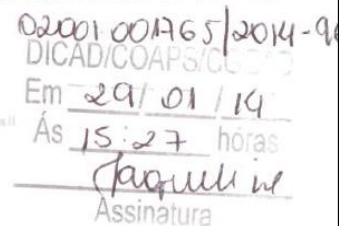 02001.001765/2014-9
DICAD/COAPS/C
Em 29/01/14
Ás 15:27 horas
Jaqueline
Assinatura